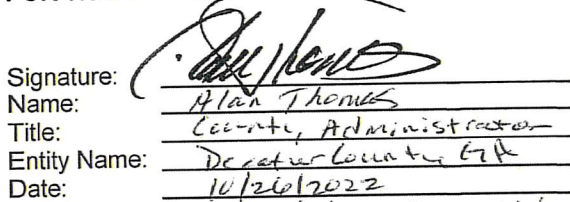 Signature:
Name: Alan Thomas
Title: County Administrator
Entity Name: Decatur County, GA
Date: 10/26/2022